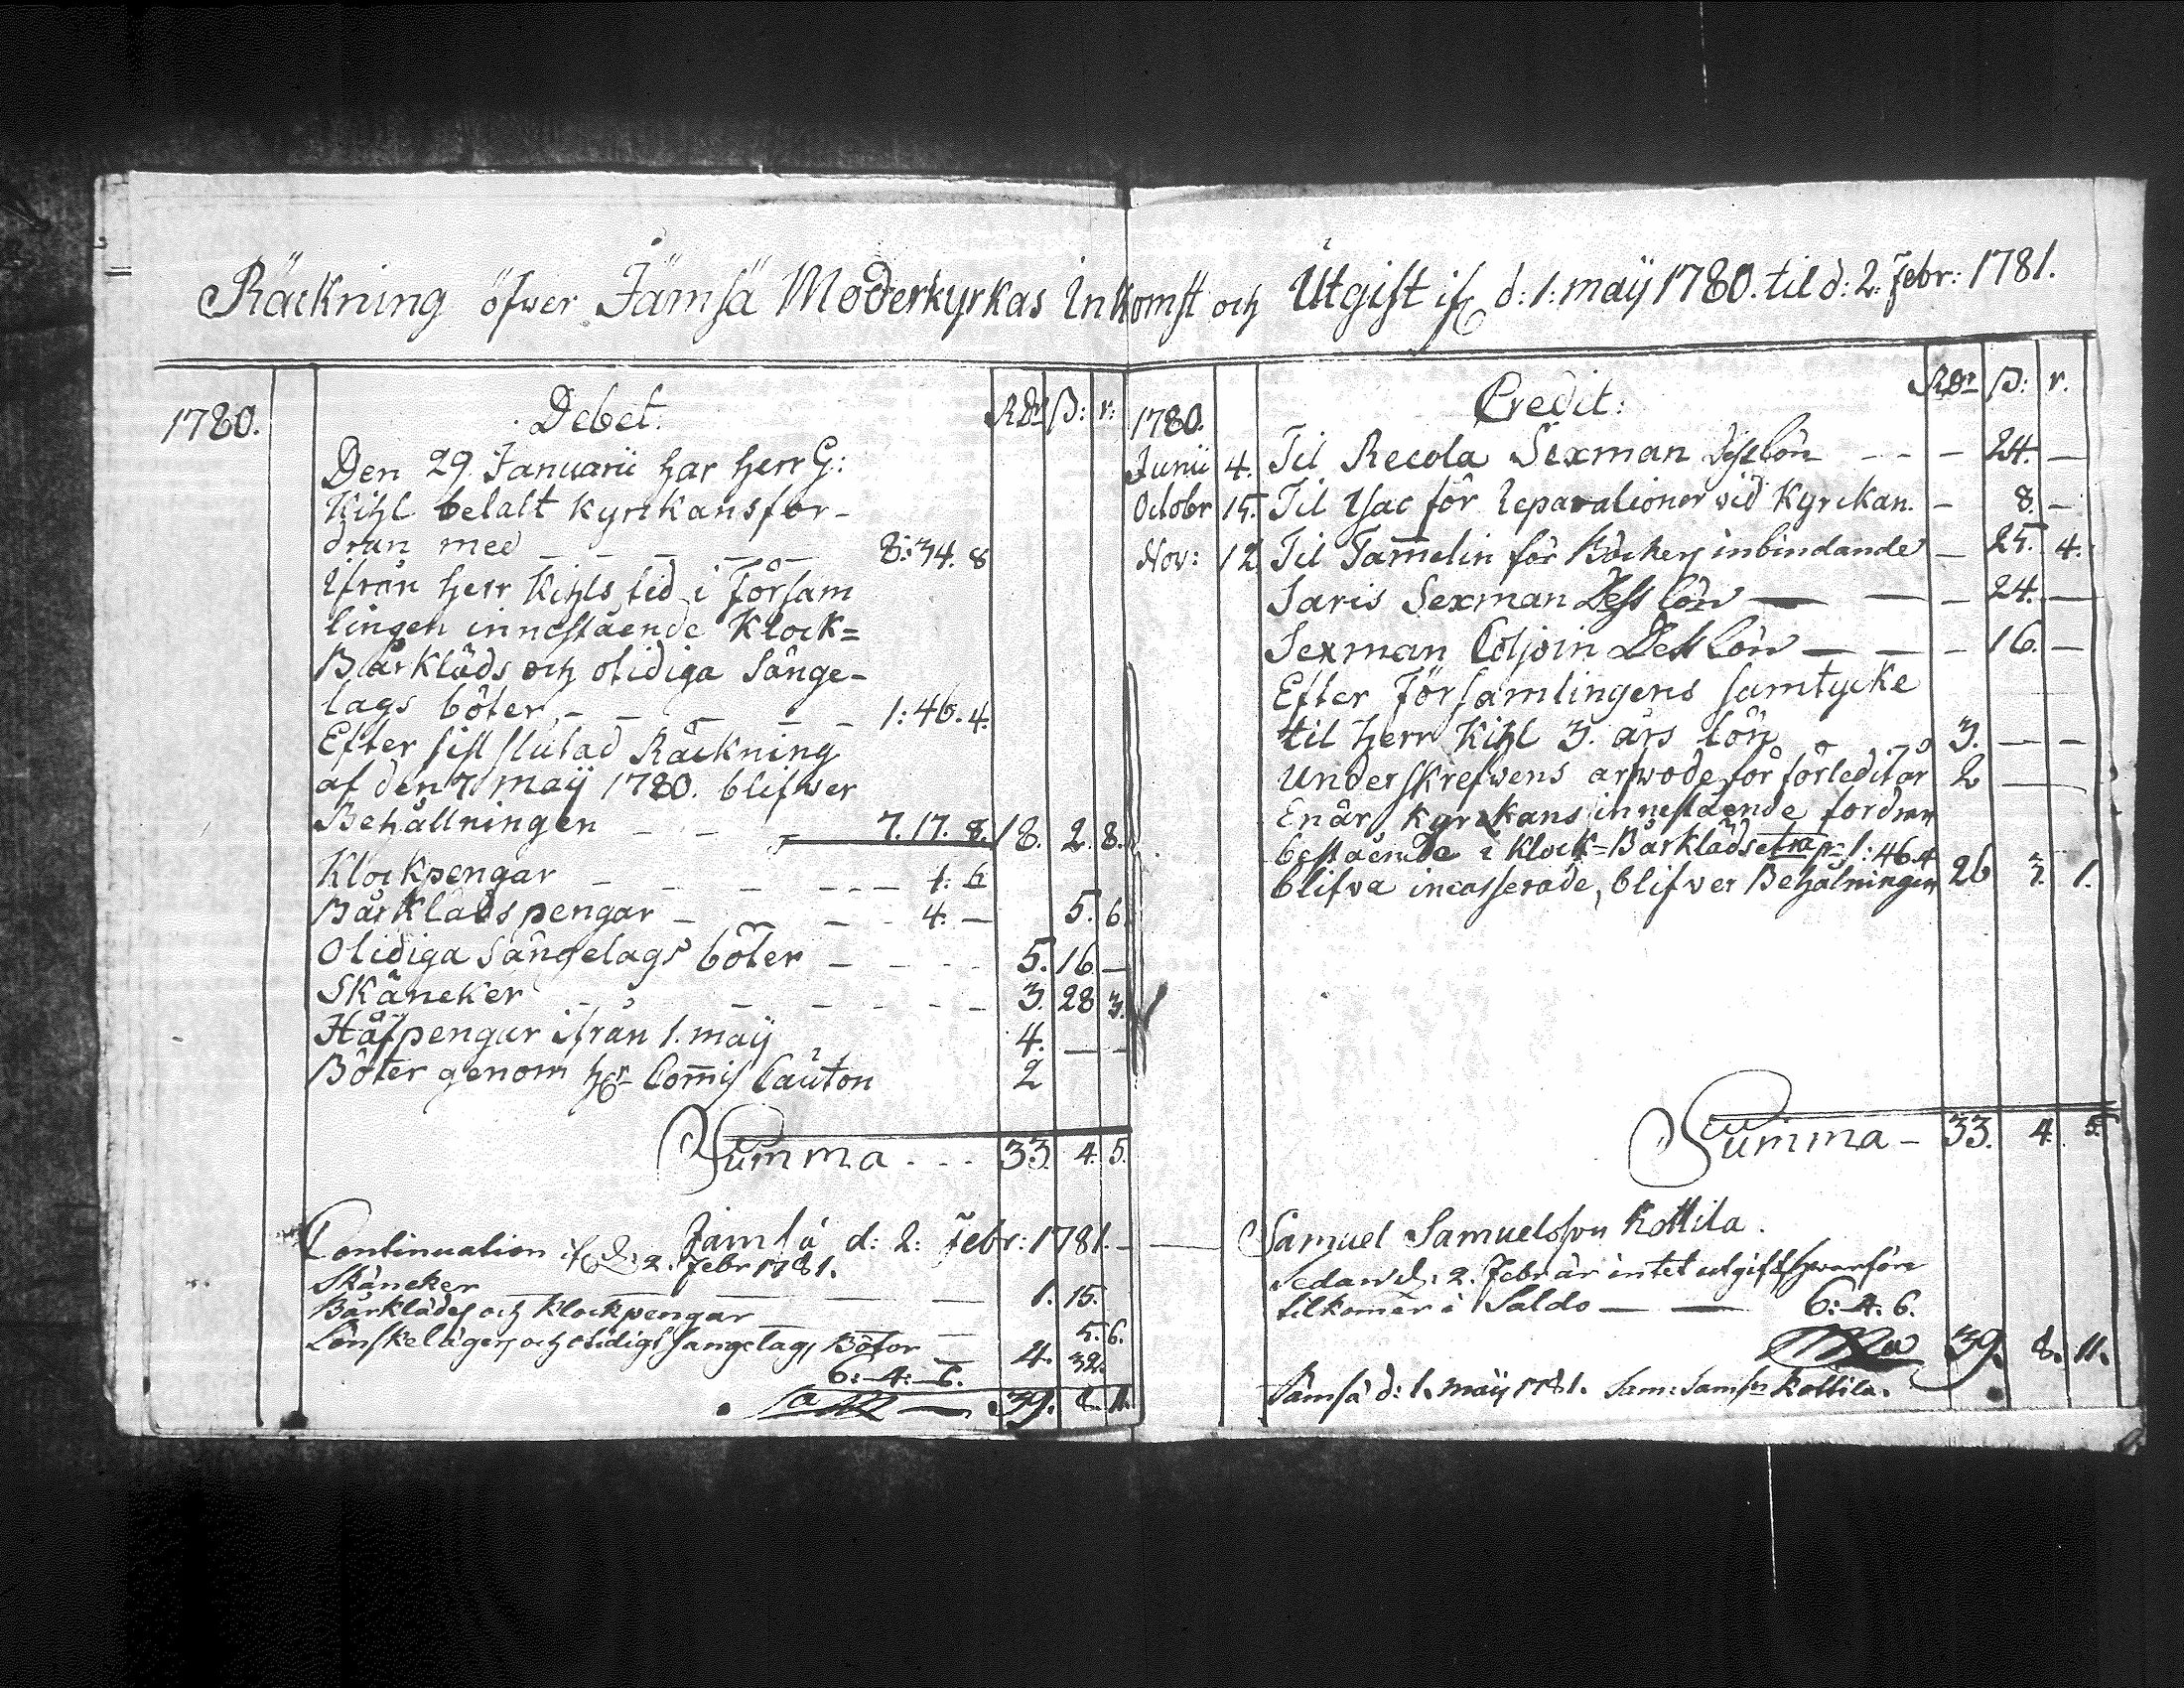 Räckning öfwer Jämsä Moderkyrkas Inkomst och Utgift if d: 1: maÿ 1780. til d: 2: Febr: 1781.
1780. Debet. RDr ß: r:
Den 29. Januarii har herr G:
Kihl betalt kyrckans for-
dran med — — — — — 8:34.8
Ifrån herr Kihls tid i Försam
lingen innestående Klock=
Bårkläds och otidiga Sänge-
lags böter, — — — — — 1:46.4.
Efter sist slutad Räckning
af den 7 maÿ 1780. blifwer
Behållningen — — — 7.17.8. 18. 2. 8.
Klockpengar — — — — — 1: 6
Bårkläds pengar — — — 4. — 5. 6.
Otidiga Sängelags böter — — — 5. 16. —
Skäncker — — — — — — 3. 28 3.
Håfpengar ifrån 1. maÿ 4. — —
Böter genom hr Com̄iss Cauton 2
Summa - - - 33. 4. 5.
Jämsä d: 2: Febr: 1781. —
Continuation if d: 2. Febr 1781.
Skäncker — — — 1. 15.
Bårkläds och Klockpengar — — 5. 6.
Lönskelägers och otidigt sängelags Böter — 4. 32.
6: 4: 6.
39. 8. 11.
1780. Credit: RDr ß: r.
Junii 4. Til Recola Sexman dess lön — — — 24. —
Octobr 15. Til Isac för Reparationer vid Kyrckan. — 8. —
Nov: 12. Til Tam̄elin för Böckers inbindande — 25. 4.
Saris Sexman Dess lön — — — 24. —
Sexman Coljoin Dess lön — — — 16. —
Efter Församlingens samtycke
til herr Kihl 3. års lön 3. — —
Underskrefwens arfwode för förledit år 2 — —
Enär Kyrckans innestående fordran
bestående i Klock=Bårkläds etra pr 1:46.4
blifva incasserade, blifwer Behålningen 26 3. 1.
Summa — 33. 4. 5.
Samuel Samuelsson Kottila.
Sedan d: 2. Febr är intet utgift hwarföre
tilkom̄er i Saldo — — 6: 4: 6.
39. 8. 11.
Jämsä d: 1. maÿ 1781. Sam: Sams: Kottila.